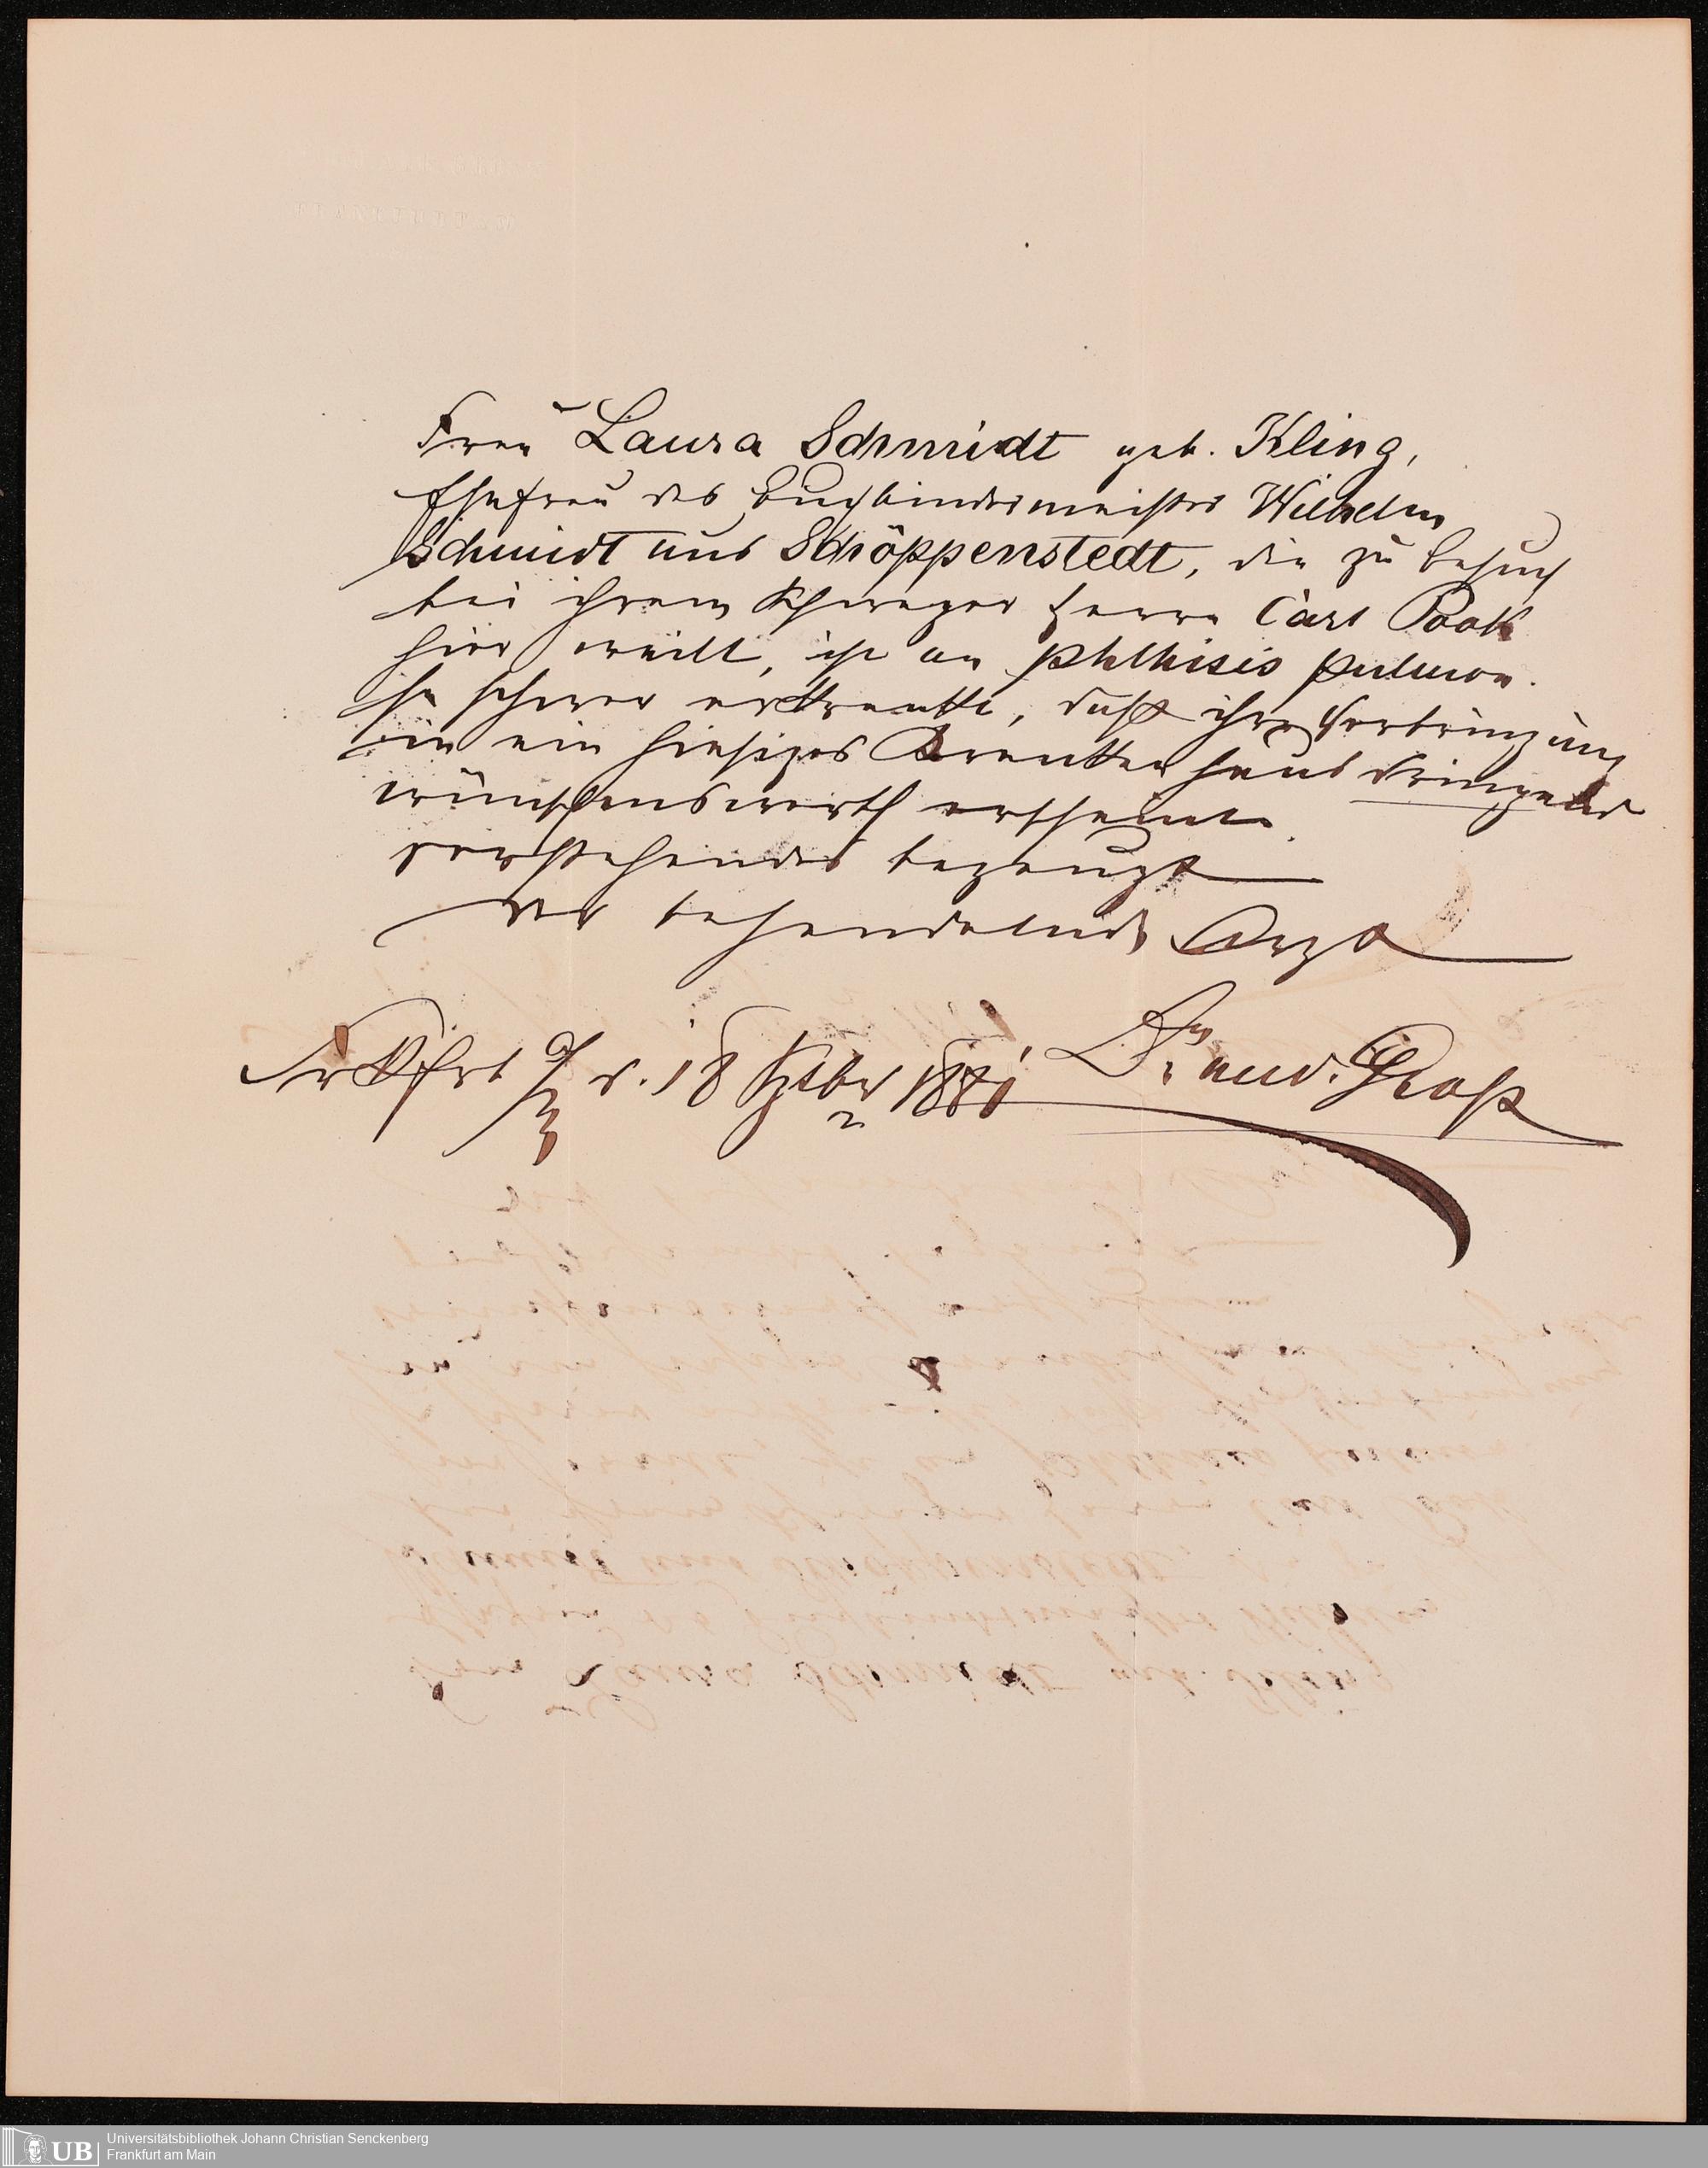 Frau Laura Schmidt geb. Kling,
Ehefrau des Buchbindermeister Wilhelm
Schmidt aus Schöppenstedt, die zu Besuch
bei ihrem Schwager Herrn Carl Pook
hier weilt, ist an Phthisis pulmon.
so schwer erkrankt, daß ihre Verbringung
in ein hiesiges Krankenhaus dringend
wünschenswerth erscheint.
Vorstehendes bezeugt
der behandelnde Arzt
Frkfrt a/M d. 18 Dr med. Groß
UB
Universitätsbibliothek Johann Christian Senckenberg
Frankfurt am Main